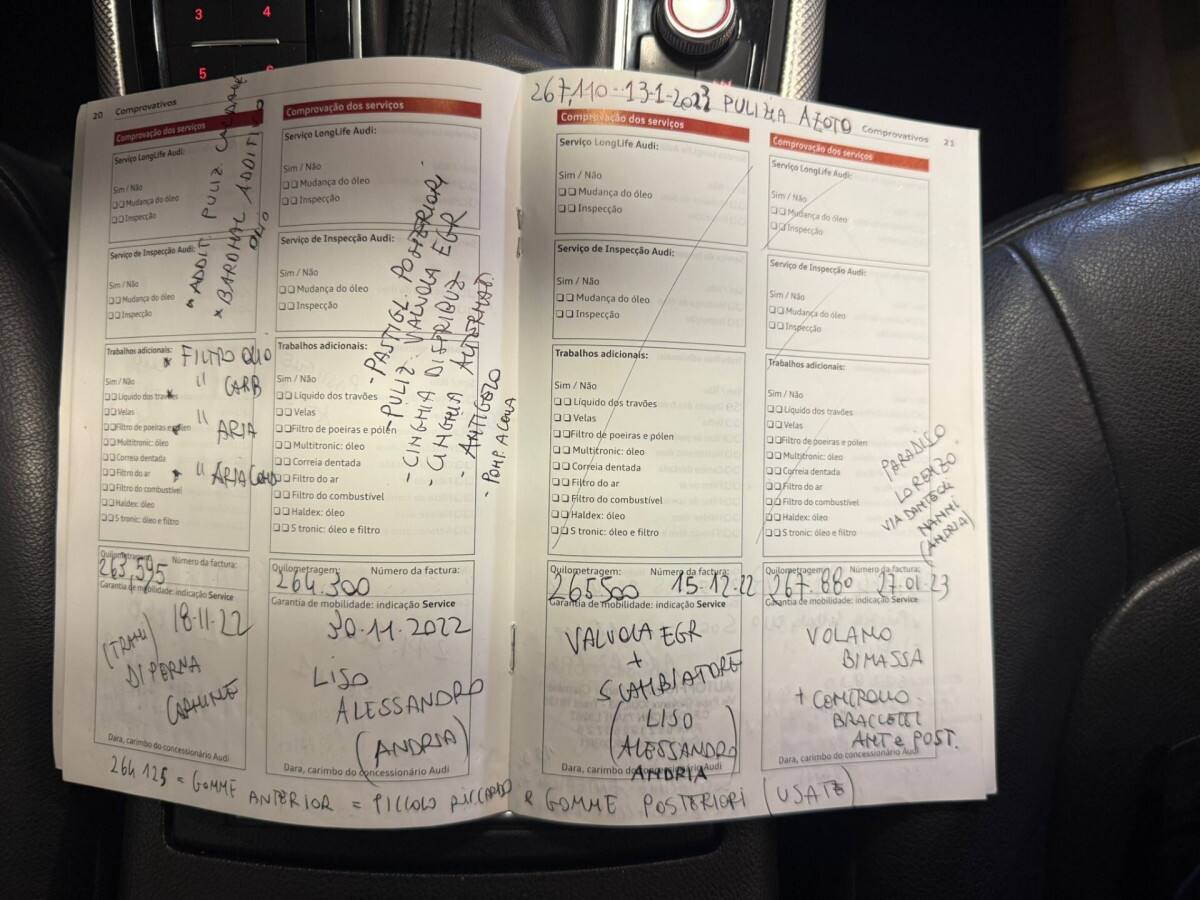 3
4
5
6
267,110--13-1-2023 PULIZIA AZOTO
20 Comprovativos
Comprovação dos serviços
Serviço LongLife Audi:
Sim / Não
Mudança do óleo
Inspecção
Serviço de Inspecção Audi:
Sim / Não
Mudança do óleo
Inspecção
* ADDIT. PULIZ.
* BARDHAL ADDITIVO
OLIO
Trabalhos adicionais:
Sim / Não
Líquido dos travões
Velas
Filtro de poeiras e pólen
Multitronic: óleo
Correia dentada
Filtro do ar
Filtro do combustível
Haldex: óleo
S tronic: óleo e filtro
* FILTRO OLIO
* " CARB
* " ARIA
* " ARIA COND
Quilometragem: Número da factura:
263,595
Garantia de mobilidade: indicação Service
18-11-22
(TRANI)
DI PERNA
CARMINE
Dara, carimbo do concessionário Audi
Comprovação dos serviços
Serviço LongLife Audi:
Sim / Não
Mudança do óleo
Inspecção
Serviço de Inspecção Audi:
Sim / Não
Mudança do óleo
Inspecção
Trabalhos adicionais:
Sim / Não
Líquido dos travões
Velas
Filtro de poeiras e pólen
Multitronic: óleo
Correia dentada
Filtro do ar
Filtro do combustível
Haldex: óleo
S tronic: óleo e filtro
- PASTIGL. POSTERIORI -
- PULIZ. VALVOLA EGR
- CINGHIA DISTRIBUZ
- CINGHIA ALTERNAT.
- ANTIGELO
- POMP ACQUA
Quilometragem: Número da factura:
264.300
Garantia de mobilidade: indicação Service
30.11.2022
LISO
ALESSANDRO
(ANDRIA)
Dara, carimbo do concessionário Audi
Comprovativos 21
Comprovação dos serviços
Serviço LongLife Audi:
Sim / Não
Mudança do óleo
Inspecção
Serviço de Inspecção Audi:
Sim / Não
Mudança do óleo
Inspecção
Trabalhos adicionais:
Sim / Não
Líquido dos travões
Velas
Filtro de poeiras e pólen
Multitronic: óleo
Correia dentada
Filtro do ar
Filtro do combustível
Haldex: óleo
S tronic: óleo e filtro
Quilometragem: Número da factura:
265500 15-12-22
Garantia de mobilidade: indicação Service
VALVOLA EGR
+
SCAMBIATORE
(LISO
ALESSANDRO)
ANDRIA
Dara, carimbo do concessionário Audi
Comprovação dos serviços
Serviço LongLife Audi:
Sim / Não
Mudança do óleo
Inspecção
Serviço de Inspecção Audi:
Sim / Não
Mudança do óleo
Inspecção
Trabalhos adicionais:
Sim / Não
Líquido dos travões
Velas
Filtro de poeiras e pólen
Multitronic: óleo
Correia dentada
Filtro do ar
Filtro do combustível
Haldex: óleo
S tronic: óleo e filtro
PARADISO
LORENZO
VIA
NANNI
(ANDRIA)
Quilometragem: Número da factura:
267.880 27.01.23
Garantia de mobilidade: indicação Service
VOLANO
BIMASSA
+ CONTROLLO
BRACCETTI
ANT e POST.
Dara, carimbo do concessionário Audi
264125 = GOMME ANTERIOR = PICCOLO RICCARDO & GOMME POSTERIORI (USATE)